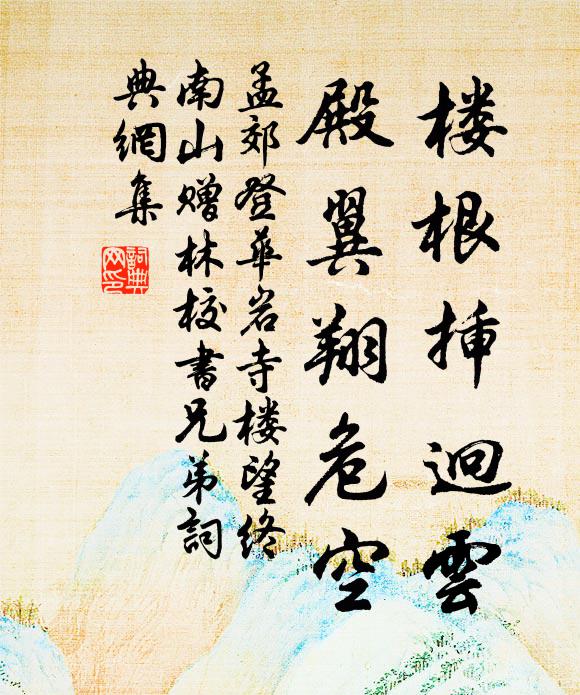 楼根揷迥雲
殿翼翔危空
孟郊登華岩寺楼望终
南山赠林校書兄弟詞
典網集
詞典
网印